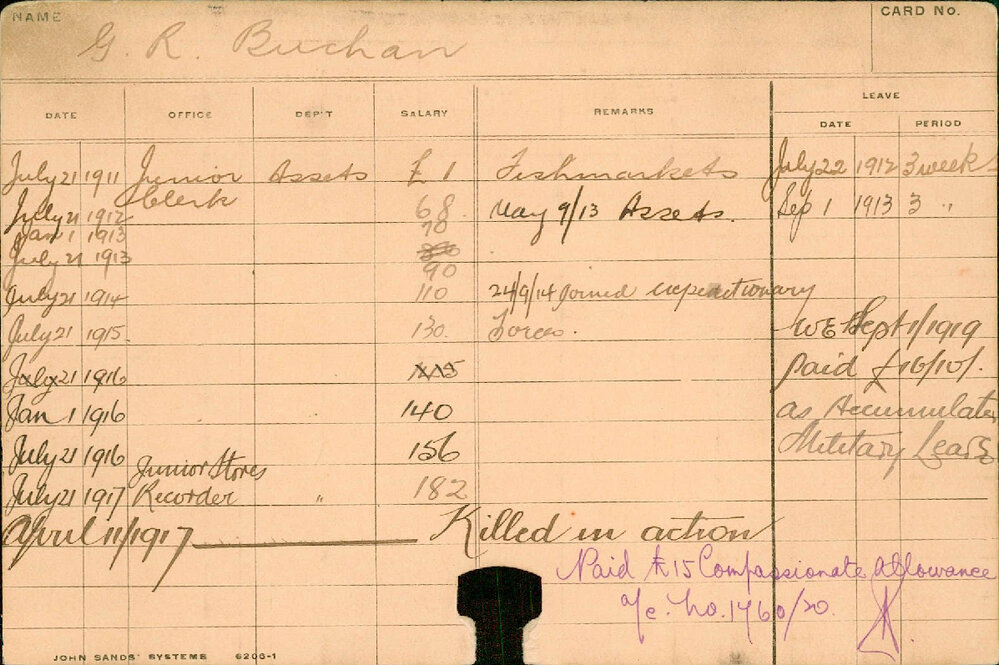 NAME
CARD No.
G. R. Buchan
LEAVE
DATE OFFICE DEP'T SALARY REMARKS DATE PERIOD
July 21 1911 Junior Assets £ 1 Fishmarkets July 22 1912 3 weeks
Clerk
July 21 1912 68 May 9/13 Assets. Sep 1 1913 3 "
Jan 1 1913 70
July 21 1913
90
July 21 1914 110 24/9/14 Joined Expeditionary
July 21 1915 130 Forces. WE Sept 1/1919
July 21 1916 paid £16/10/.
Jan 1 1916 140 as Accumulated
July 21 1916 156 Military Leave
Junior Stores
July 21 1917 Recorder " 182
April 11/1917 Killed in action
Paid £15 Compassionate Allowance
a/c. No. 1760/20.
JOHN SANDS' SYSTEMS 6206-1